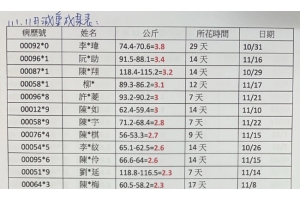 111.11月減重成果表:
病歷號 姓名 公斤 所花時間 日期
00092*0 李*瑋 74.4-70.6=3.8 29 天 10/31
00096*1 阮*勛 91.5-88.1=3.4 14 天 11/16
00087*1 陳*翔 118.4-115.2=3.2 14 天 11/26
00058*1 柳* 89.3-86.2=3.1 12 天 11/17
00096*8 許*菱 93.2-90.2=3 7 天 11/21
00012*9 陳*如 62.4-59.4=3 14 天 11/10
00058*9 陳*宇 71.2-68.4=2.8 7 天 11/22
00076*4 陳*棋 56-53.3=2.7 9 天 11/15
00054*5 李*紋 65.1-62.5=2.6 14 天 10/26
00095*6 陳*伶 66.6-64=2.6 14 天 11/15
00051*9 劉*延 118.8-116.5=2.3 7 天 11/21
00064*3 陳*梅 60.5-58.2=2.3 17 天 11/8